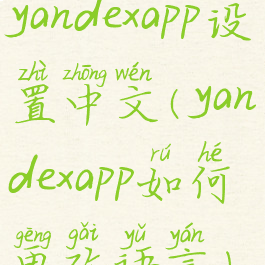 yandexapp设
zhì zhōng wén
置中文(yan
rú hé
dexapp如何
gēng gǎi yǔ yán
更改语言)